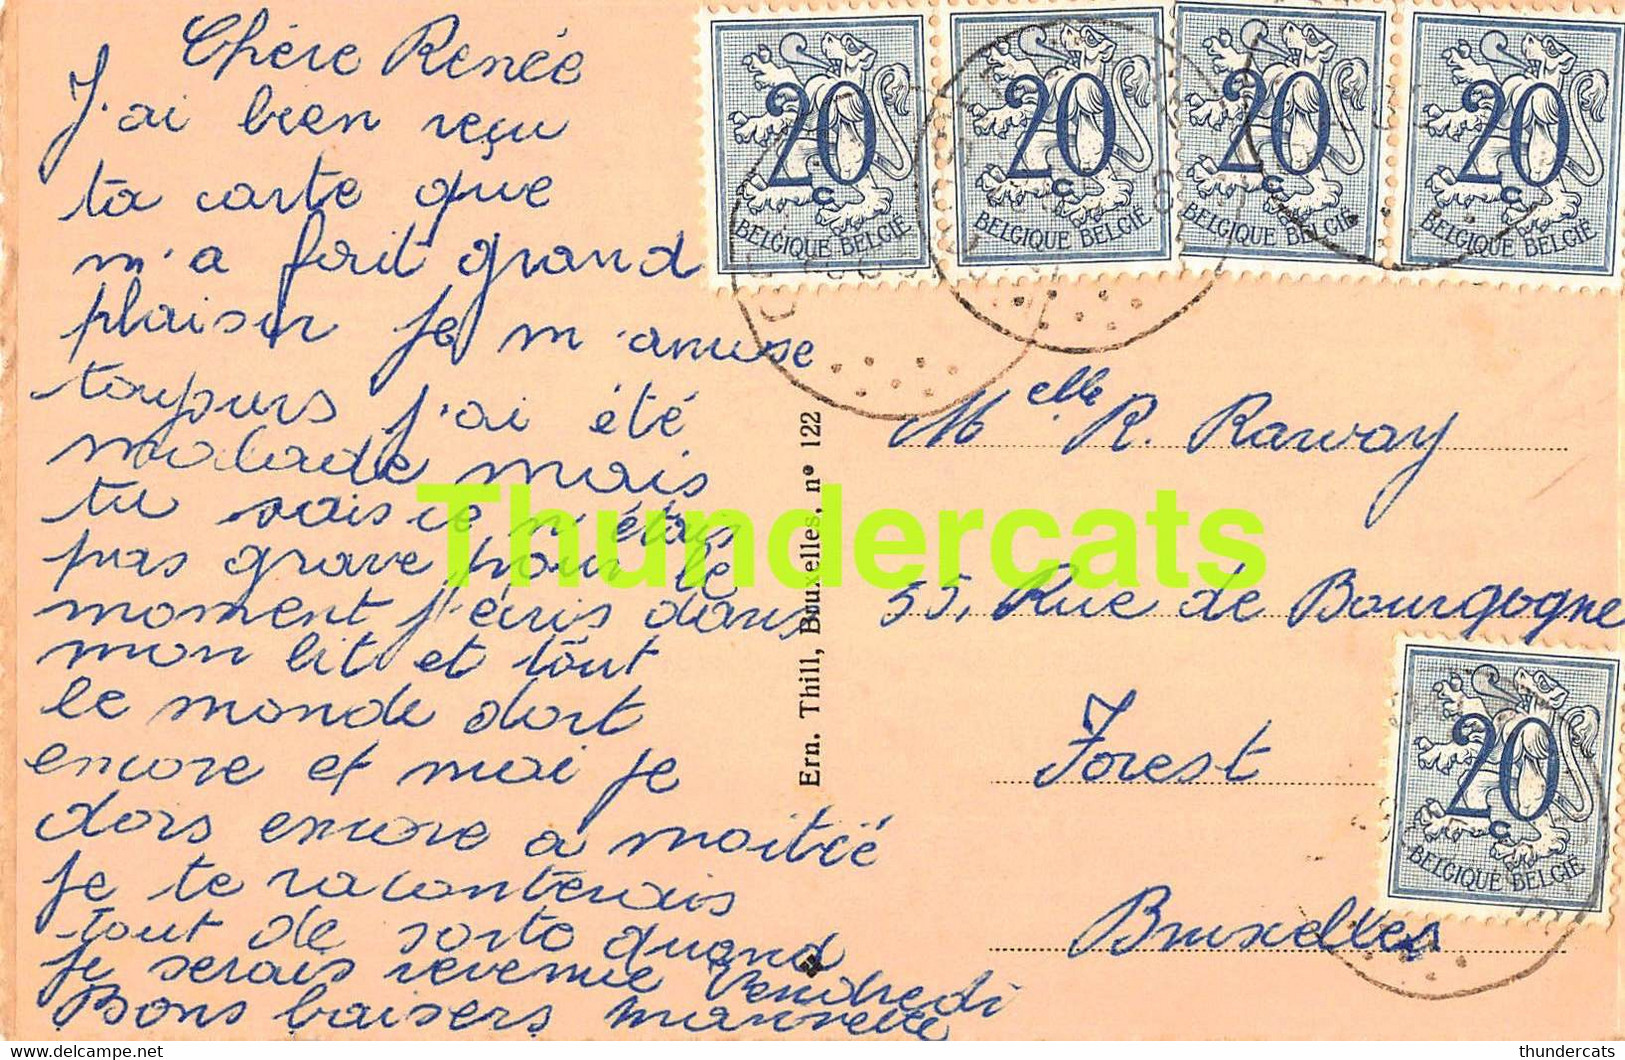 Chère Renée
J'ai bien reçu
ta carte que
m'a fait grand
plaisir je m'amuse
toujours j'ai été
malade mais
tu sais ce n'étais
pas grave pour le
moment j'écris dans
mon lit et tout
le monde dort
encore et moi je
dors encore a moitié
je te raconterais
tout de sorte quand
je serais revenue Vendredi
Bons baisers
20
c
BELGIQUE BELGIË
20
c
BELGIQUE BELGIË
20
c
BELGIQUE BELGIË
20
c
BELGIQUE BELGIË
Ern. Thill, Bruxelles, n° 122
Melle R. Raway
55, Rue de Bourgogne
Forest
Bruxelles
20
c
BELGIQUE BELGIË
Thundercats
thundercats